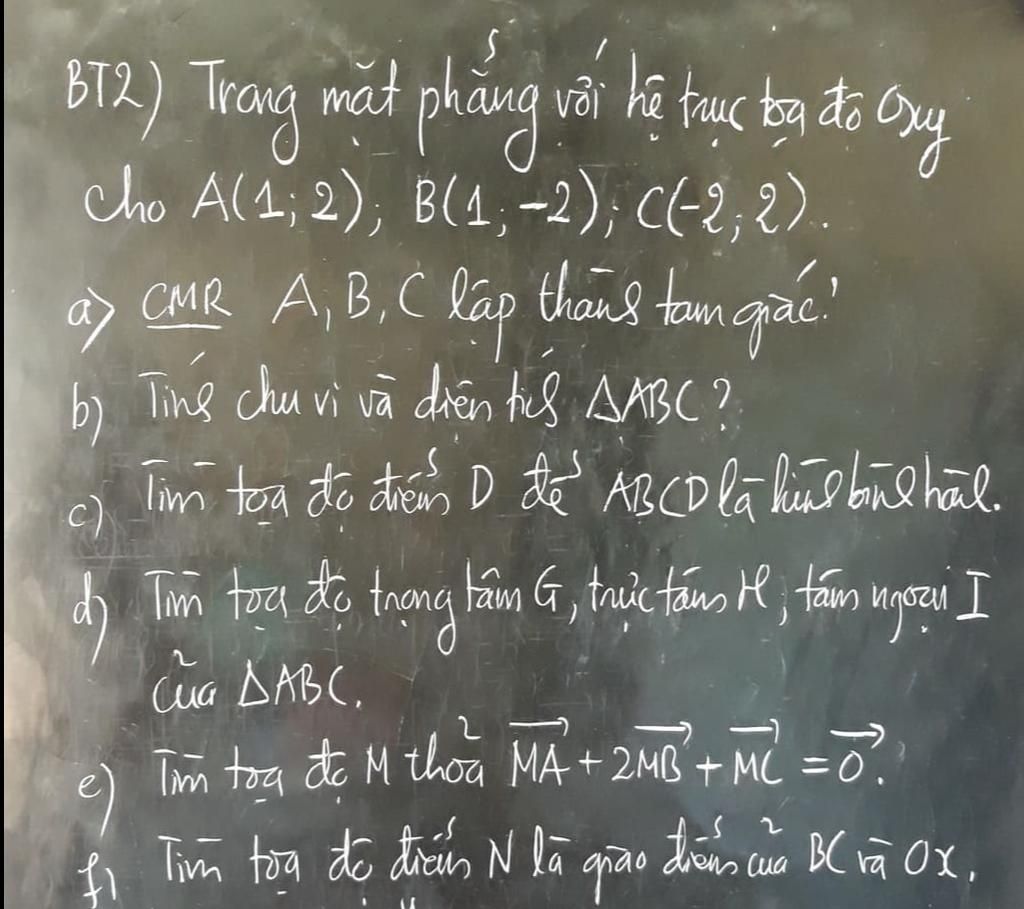 BT2) Trong mặt phẳng với hệ trục tọa độ Oxy
cho A(1; 2); B(1; -2); C(-2; 2).
a) CMR A, B, C lập thành tam giác!
b) Tính chu vi và diện tích ΔABC?
c) Tìm tọa độ điểm D để ABCD là hình bình hành.
d) Tìm tọa độ trọng tâm G, trực tâm H, tâm ngoại I
của ΔABC.
e) Tìm tọa độ M thỏa \overrightarrow{MA} + 2\overrightarrow{MB} + \overrightarrow{MC} = \overrightarrow{0}?
f) Tìm tọa độ điểm N là giao điểm của BC và Ox.